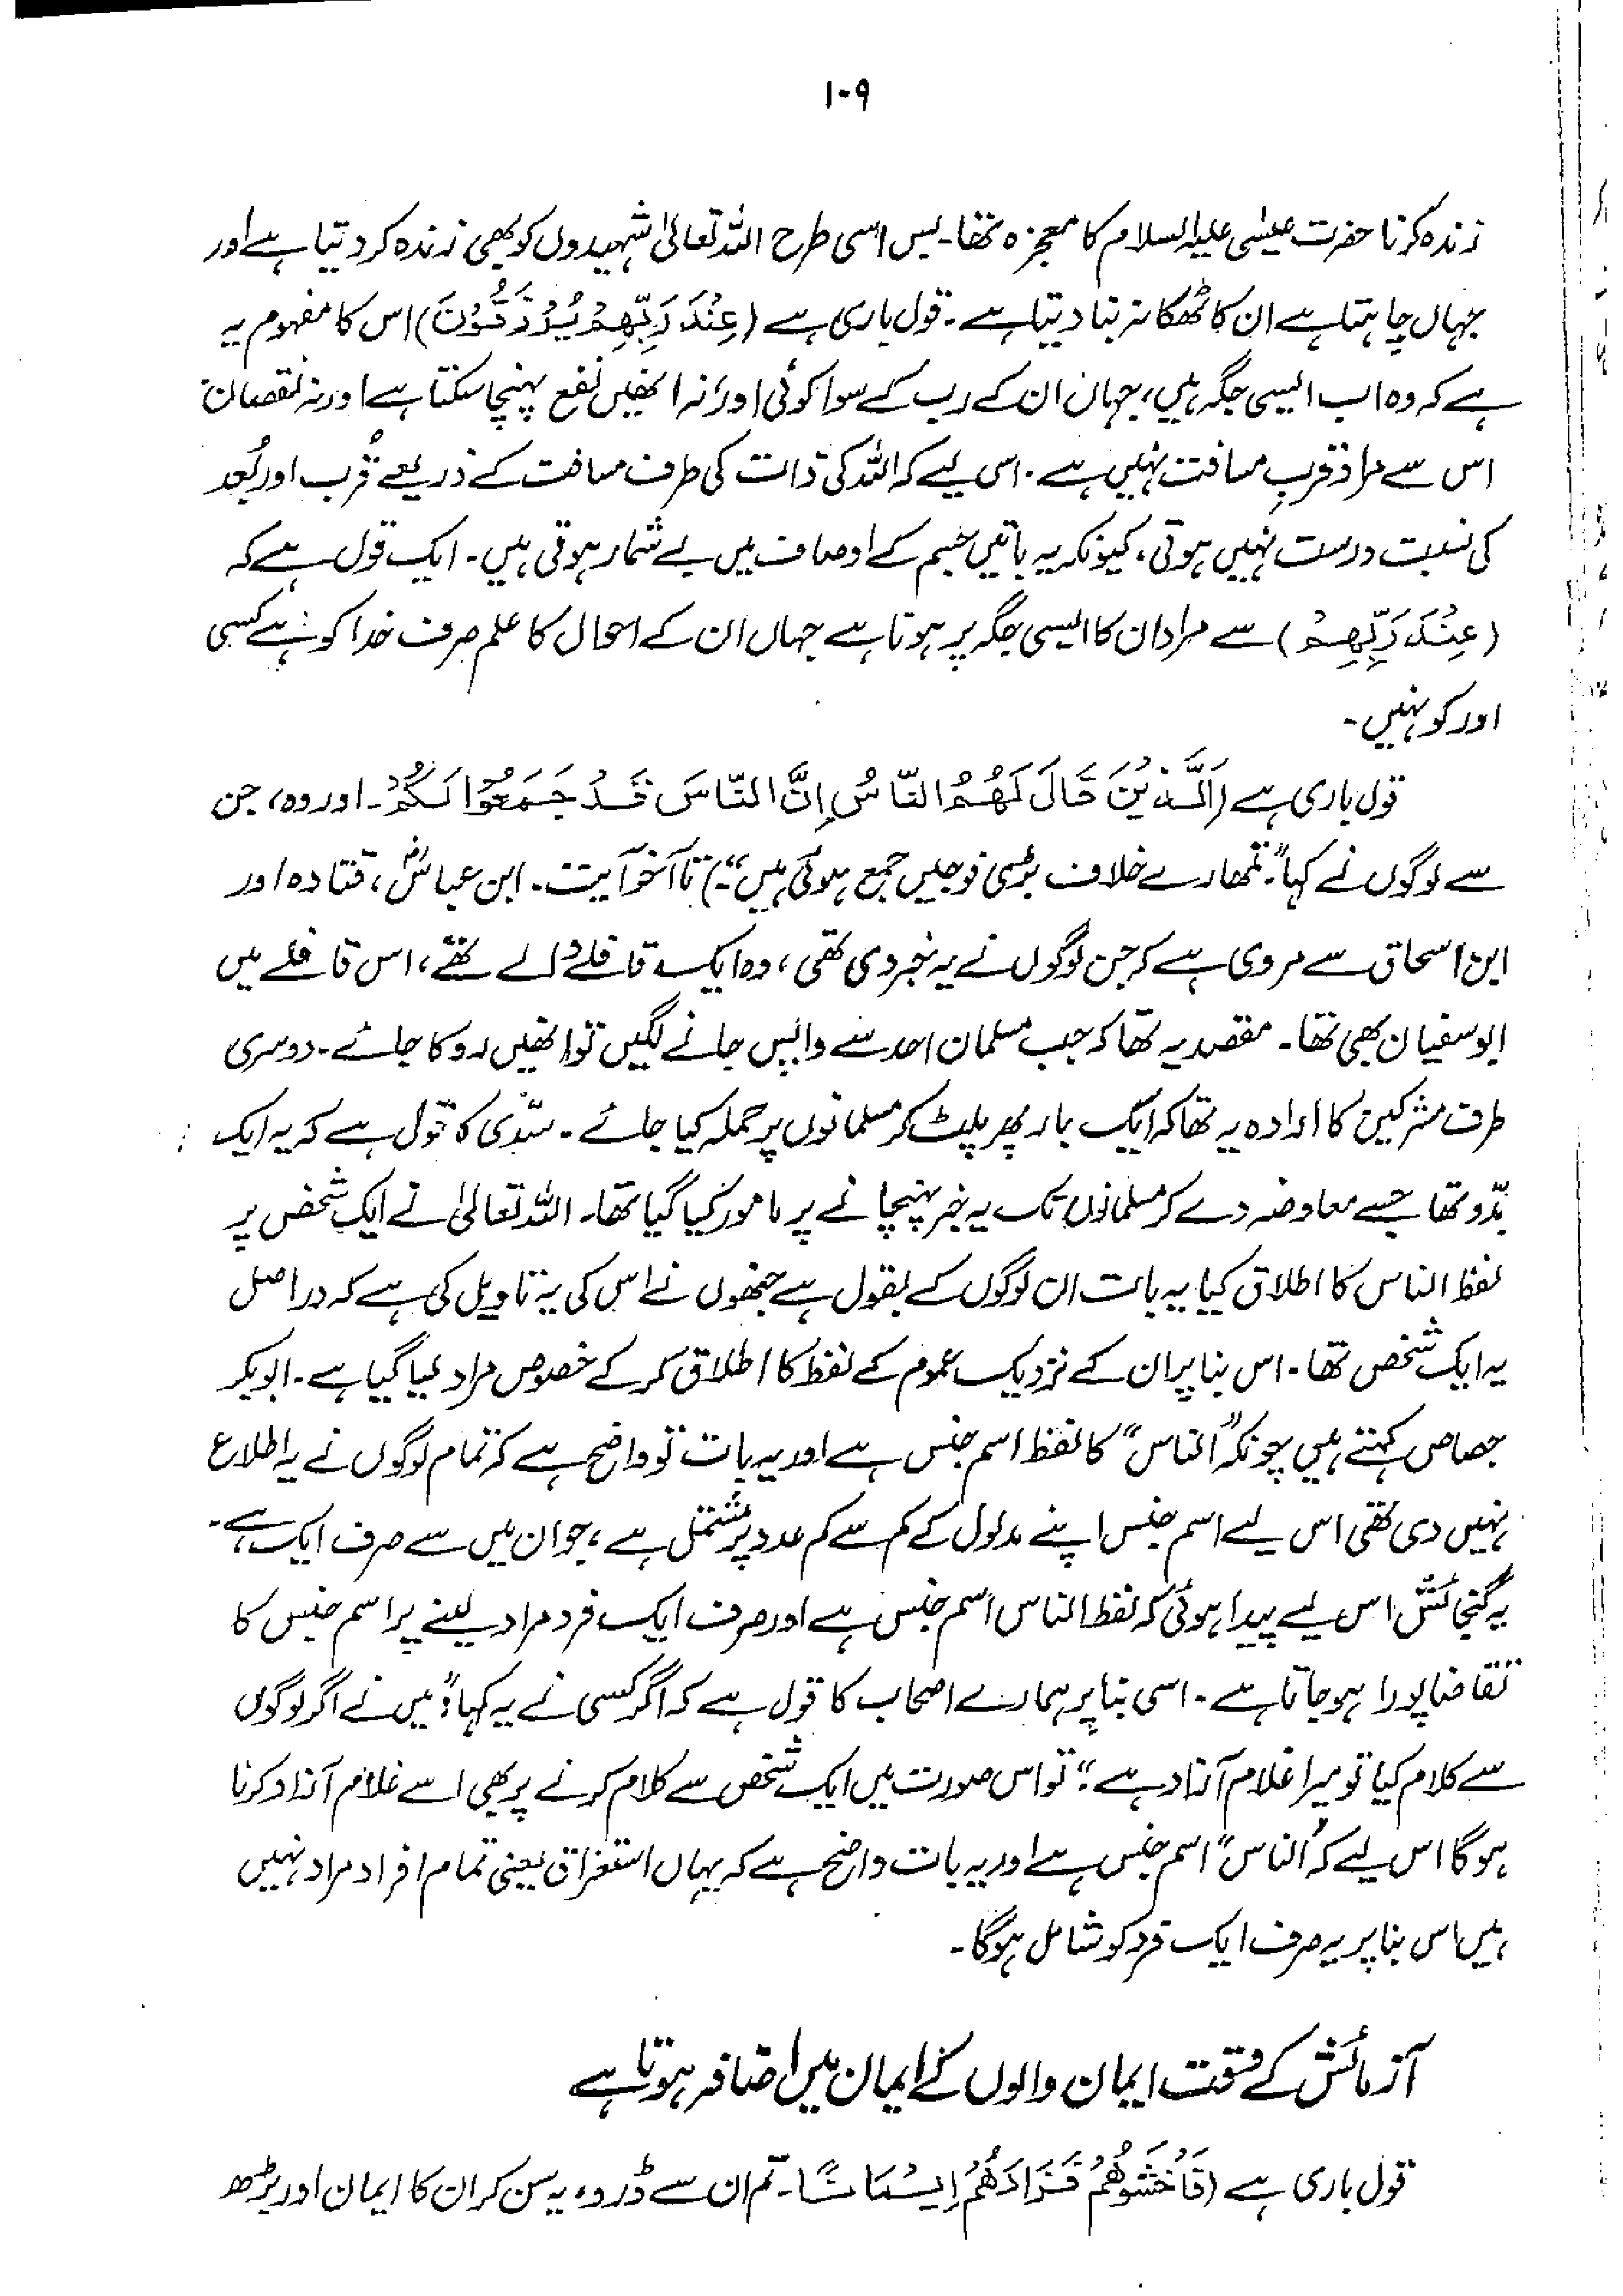 ۱۰۹
زندہ کرنا حضرت عیسٰی علیہ السلام کا معجزہ تھا۔ بس اسی طرح اللہ تعالیٰ شہیدوں کو بھی زندہ کر دیتا ہے اور
جہاں چاہتا ہے ان کا ٹھکانہ بنا دیتا ہے۔ قول باری ہے (عِنْدَ رَبِّھِمْ یُرْزَقُوْنَ) اس کا مفہوم یہ
ہے کہ وہ اب ایسی جگہ ہیں، جہاں ان کے رب کے سوا کوئی اور نہ انھیں نفع پہنچا سکتا ہے اور نہ نقصان
اس سے مراد قربِ مسافت نہیں ہے۔ اسی لیے کہ اللہ کی ذات کی طرف مسافت کے ذریعے قُرب اور بُعد
کی نسبت درست نہیں ہوتی، کیونکہ یہ باتیں جسم کے اوصاف میں بے شمار ہوتی ہیں۔ ایک قول ہے کہ
(عِنْدَ رَبِّھِمْ) سے مراد ان کا ایسی جگہ پر ہوتا ہے جہاں ان کے احوال کا علم صرف خدا کو ہے کسی
اور کو نہیں۔
قول باری ہے (اَلَّذِیْنَ قَالَ لَھُمُ النَّاسُ اِنَّ النَّاسَ قَدْ جَمَعُوْا لَکُمْ۔ اور وہ، جن
سے لوگوں نے کہا "تمھارے خلاف بڑی فوجیں جمع ہوئی ہیں"۔) تا آخر آیت۔ ابن عباسؓ، قتادہ اور
ابن اسحاق سے مروی ہے کہ جن لوگوں نے یہ خبر دی تھی، وہ ایک قافلے والے تھے، اس قافلے میں
ابوسفیان بھی تھا۔ مقصد یہ تھا کہ جب مسلمان احد سے واپس جانے لگیں تو انھیں روکا جائے۔ دوسری
طرف مشرکین کا ارادہ یہ تھا کہ ایک بار پھر پلٹ کر مسلمانوں پر حملہ کیا جائے۔ سدّی کا قول ہے کہ یہ ایک
بدّو تھا جسے معاوضہ دے کر مسلمانوں تک یہ خبر پہنچانے پر مامور کیا گیا تھا۔ اللہ تعالیٰ نے ایک شخص پر
لفظ الناس کا اطلاق کیا یہ بات ان لوگوں کے بقول ہے جنھوں نے اس کی یہ تاویل کی ہے کہ دراصل
یہ ایک شخص تھا۔ اس بنا پر ان کے نزدیک عموم کے لفظ کا اطلاق کر کے خصوص مراد لیا گیا ہے۔ ابوبکر
جصاص کہتے ہیں چونکہ "الناس" کا لفظ اسم جنس ہے اور یہ بات تو واضح ہے کہ تمام لوگوں نے یہ اطلاع
نہیں دی تھی اس لیے اسم جنس اپنے مدلول کے کم سے کم عدد پر مشتمل ہے، جو ان میں سے صرف ایک ہے۔
یہ گنجائش اس لیے پیدا ہوئی کہ لفظ الناس اسم جنس ہے اور صرف ایک فرد مراد لینے پر اسم جنس کا
تقاضا پورا ہو جاتا ہے۔ اسی بنا پر ہمارے اصحاب کا قول ہے کہ اگر کسی نے یہ کہا "میں نے اگر لوگوں
سے کلام کیا تو میرا غلام آزاد ہے"، تو اس صورت میں ایک شخص سے کلام کرنے پر بھی اسے غلام آزاد کرنا
ہوگا اس لیے کہ "الناس" اسم جنس ہے اور یہ بات واضح ہے کہ یہاں استغراق یعنی تمام افراد مراد نہیں
ہیں اس بنا پر یہ صرف ایک فرد کو شامل ہوگا۔
آزمائش کے وقت ایمان والوں کے ایمان میں اضافہ ہوتا ہے
قول باری ہے (فَاخْشَوْھُمْ فَزَادَھُمْ اِیْمَانًا۔ تم ان سے ڈرو، یہ سن کر ان کا ایمان اور بڑھ